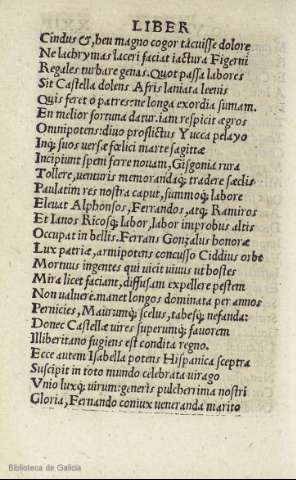 LIBER
Cindus &, heu magno cogor tacuisse dolore
Ne lachrymas laceri faciat iactura Figerni
Regales turbare genas. Quot passa labores
Sit Castella dolens Afris laniata leenis
Quis feret o patres: ne longa exordia sumam.
En melior fortuna datur. iam respicit ægros
Omnipotens: diuo proflictus Yucca pelayo
Inq; suos uersæ fœlici marte sagittæ
Incipiunt spem ferre nouam, Gisgonia rura
Tollere, uenturis memorandaq; tradere sæclis
Paulatim res nostra caput, summoq; labore
Eleuat Alphonsos, Ferrandos, atq; Ramiros
Et Ianos Ricosq; labor, labor improbus altis
Occupat in bellis. Ferrans Gonzalus honoræ
Lux patriæ, armipotens concusso Ciddius orbe
Mortuus ingentes qui uicit uiuus ut hostes
Mira licet faciant, diffusam expellere pestem
Non ualuere. manet longos dominata per annos
Pernicies, Maurumq; scelus, tabesq; nefanda:
Donec Castellæ uires superumq; fauorem
Illiberitano fugiens est condita regno.
Ecce autem Isabella potens Hispanica sceptra
Suscipit in toto mundo celebrata uirago
Vnio luxq; uirum: generis pulcherrima nostri
Gloria, Fernando coniux ueneranda marito
Biblioteca de Galicia